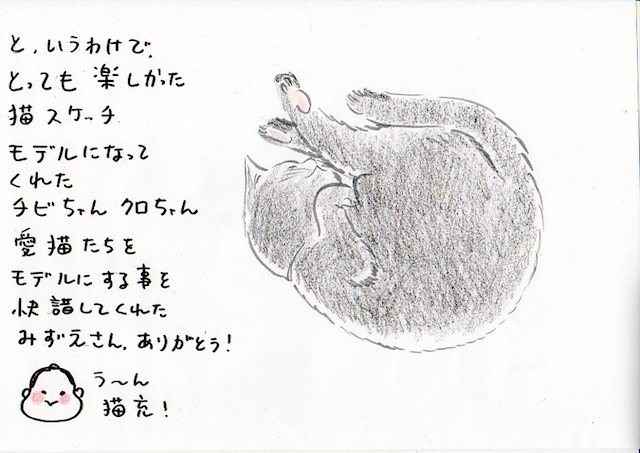 と、いうわけで、
とっても楽しかった
猫スケッチ
モデルになって
くれた
チビちゃん クロちゃん
愛猫たちを
モデルにする事を
快諾してくれた
みずえさん、ありがとう！
う〜ん
猫充！